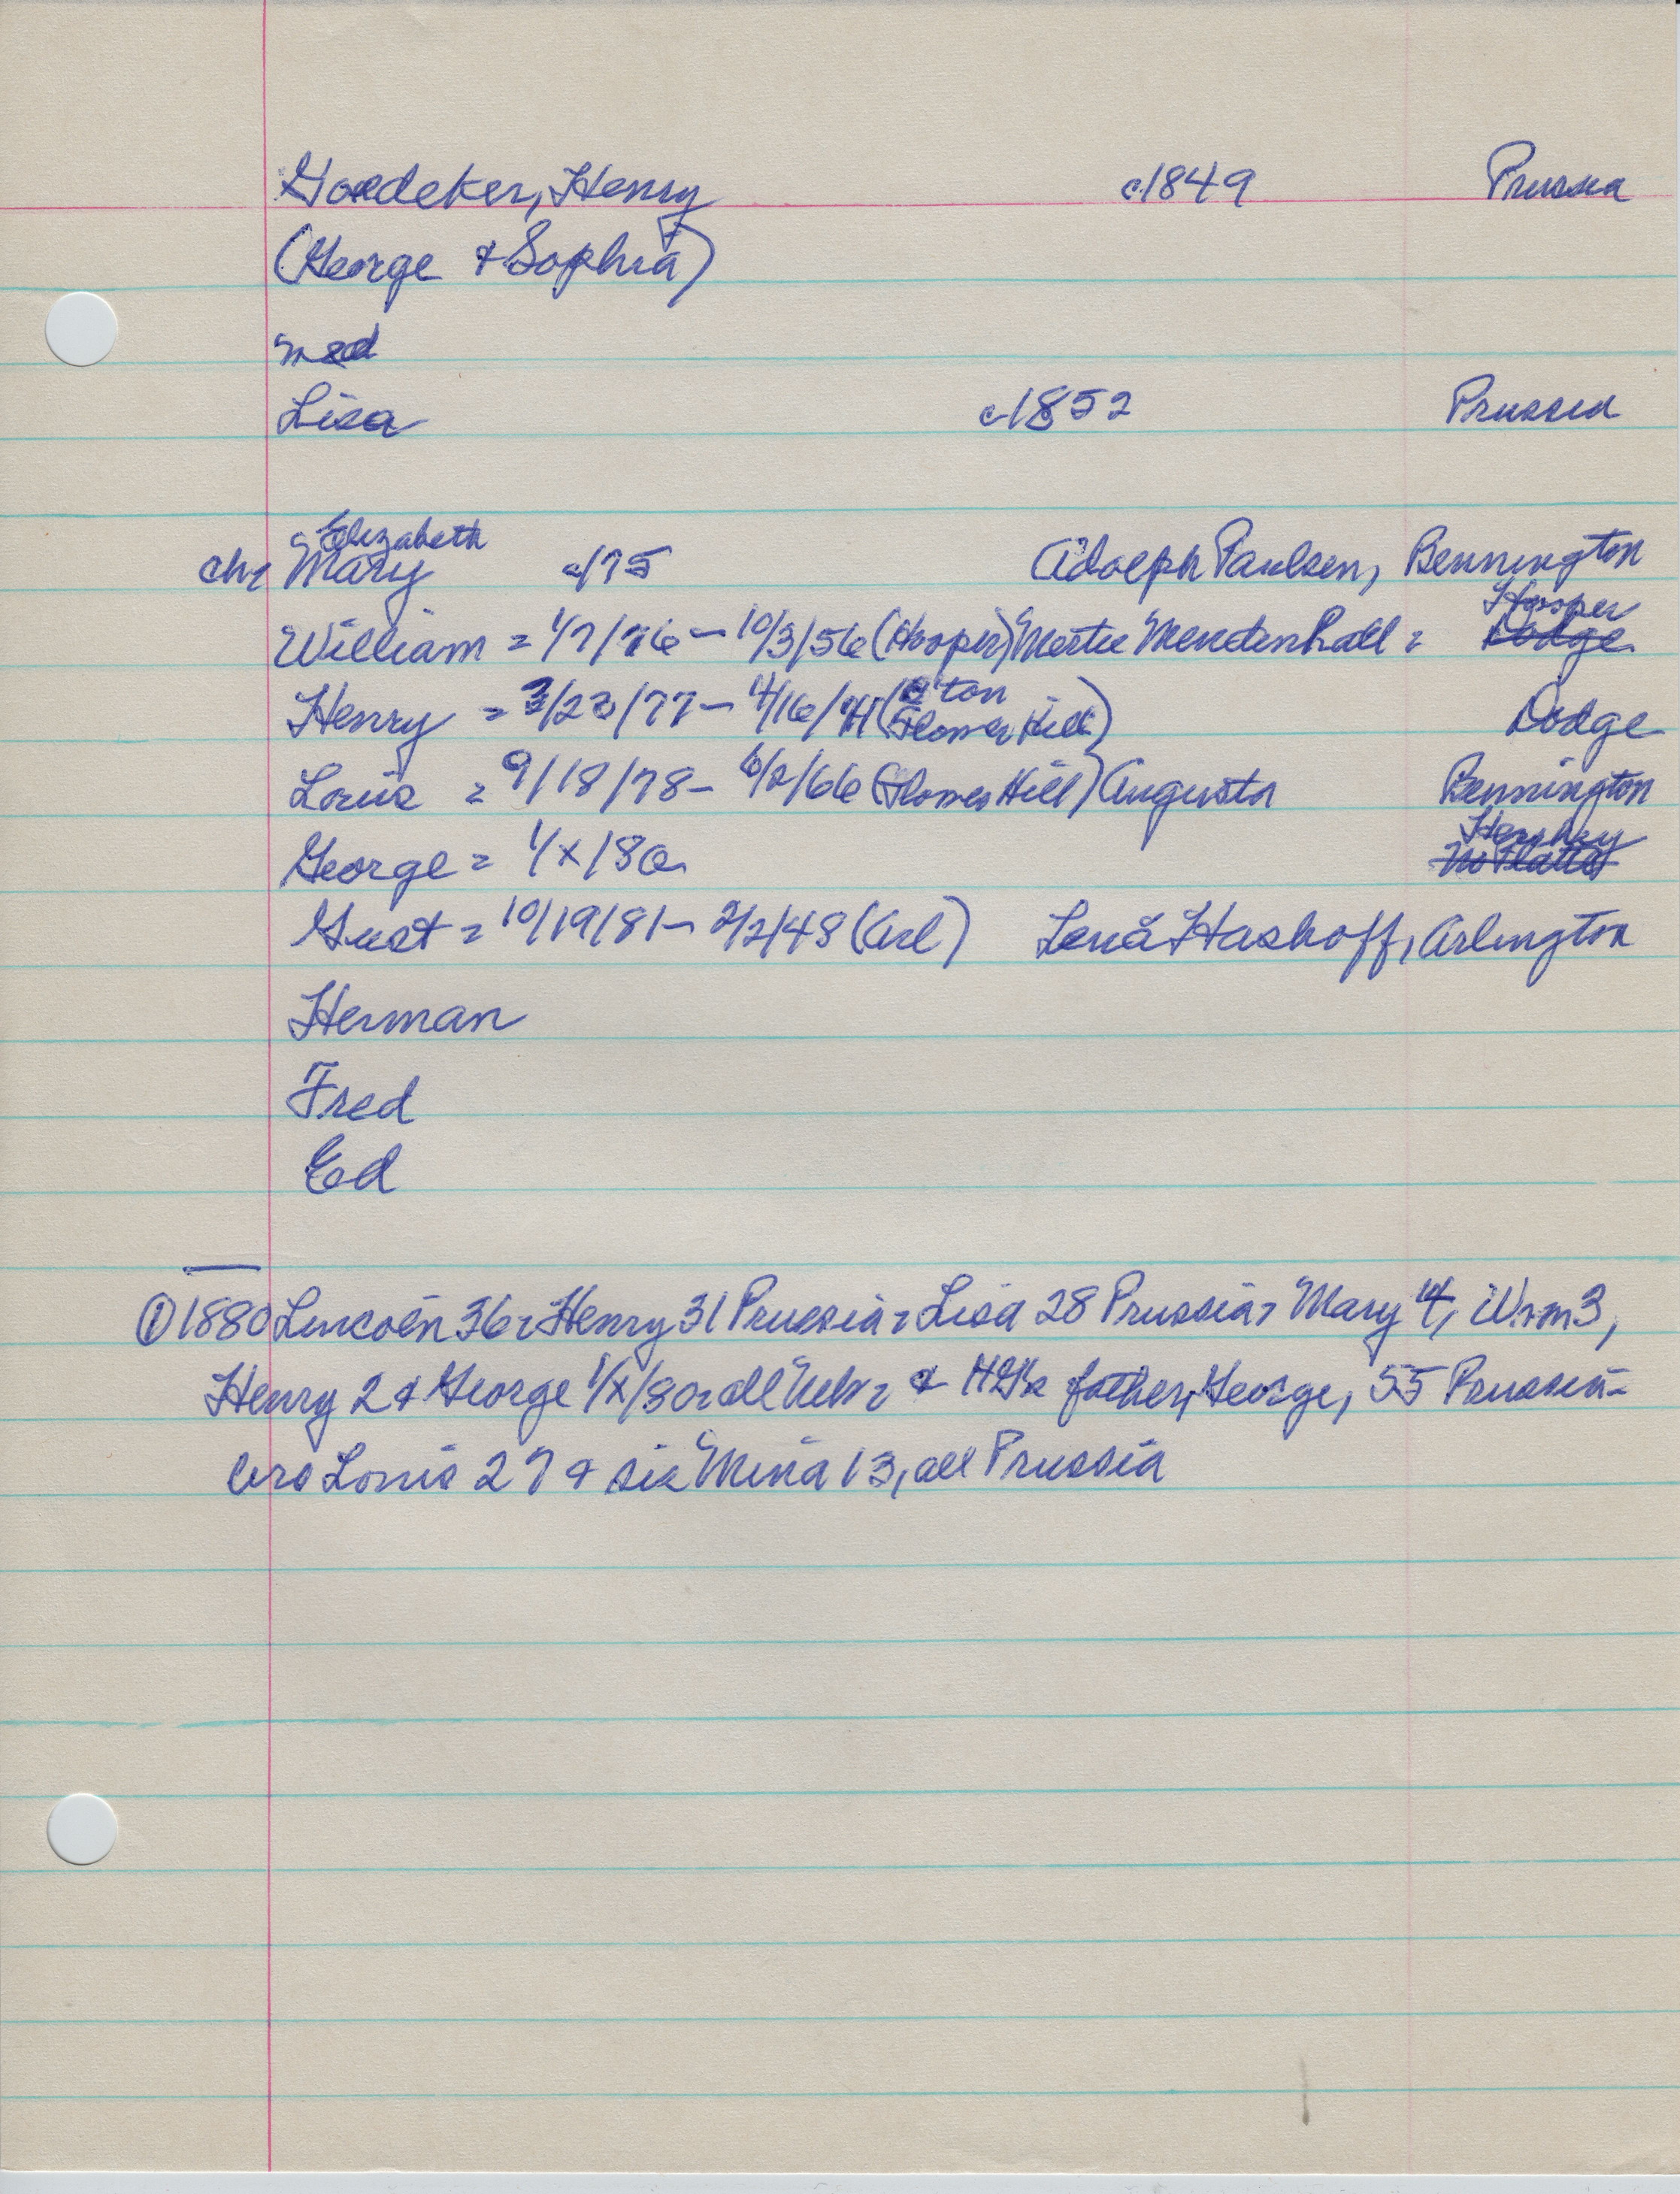 Goedeker, Henry c1849 Prussia
(George & Sophia)
md
Lisa c1852 Prussia
Elizabeth
ch- Mary c/75 Adolph Paulsen, Bennington
Hooper
William - 1/7/76 - 10/3/56 (Hooper) Mertie Mendenhall - Dodge
B'ton
Henry - 3/23/77 - 4/16/41 (Flower Hill) Dodge
Louis - 9/18/78 - 6/2/66 (Flower Hill) Augusta Bennington
Hershey
George - 1/x/80 No Platte
Gust - 10/19/81 - 2/2/48 (Arl) Lena Hashoff, Arlington
Herman
Fred
Ed
① 1880 Lincoln 36 - Henry 31 Prussia - Lisa 28 Prussia - Mary 4, Wm 3,
Henry 2 & George 1/x/80 - all Neb - & father, George, 55 Prussia -
bro Louis 27 & sis Mina 13, all Prussia